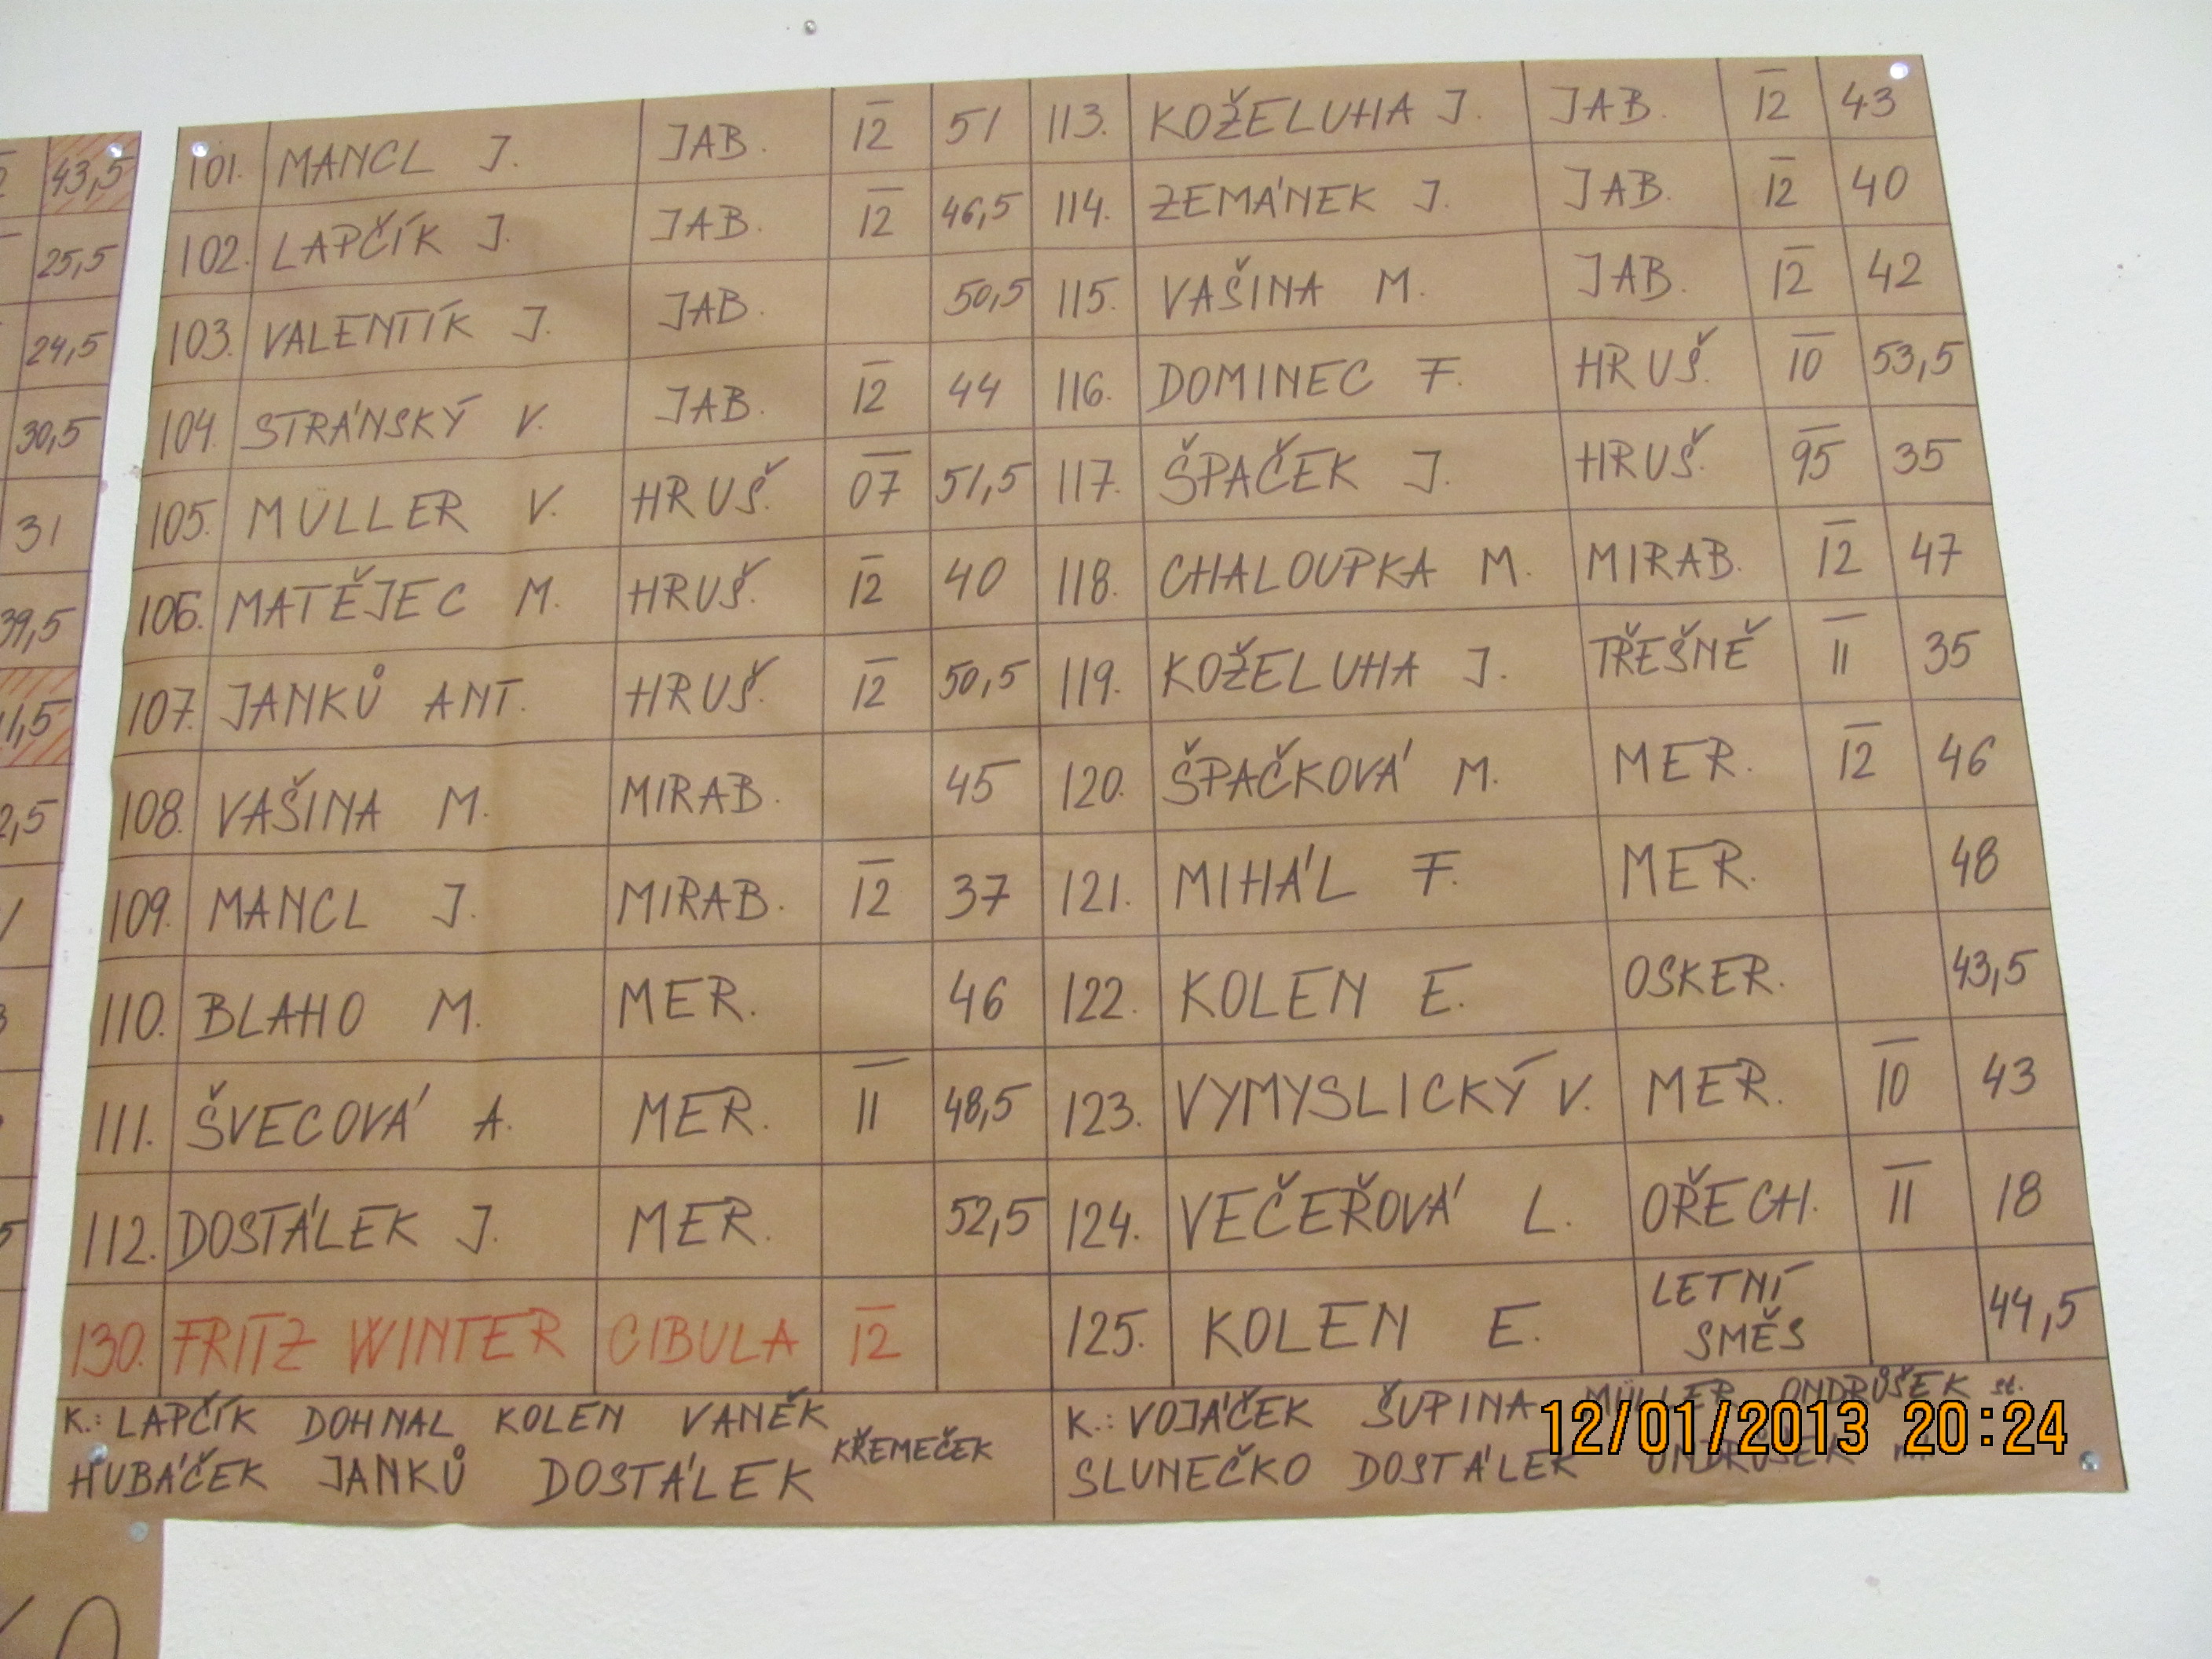 43,5
25,5
24,5
30,5
31
39,5
101. MANCL J. JAB. 12 51
102. LAPČÍK J. JAB. 12 46,5
103. VALENTÍK J. JAB. 50,5
104. STRÁNSKÝ V. JAB. 12 44
105. MÜLLER V. HRUŠ. 07 51,5
106. MATĚJEC M. HRUŠ. 12 40
107. JANKŮ ANT. HRUŠ. 12 50,5
108. VAŠINA M. MIRAB. 45
109. MANCL J. MIRAB. 12 37
110. BLAHO M. MER. 46
111. ŠVECOVÁ A. MER. 11 48,5
112. DOSTÁLEK J. MER. 52,5
130. FRITZ WINTER CIBULA 12
K.: LAPČÍK DOHNAL KOLEN VANĚK
KŘEMEČEK
HUBÁČEK JANKŮ DOSTÁLEK
113. KOŽELUHA J. JAB. 12 43
114. ZEMÁNEK J. JAB. 12 40
115. VAŠINA M. JAB. 12 42
116. DOMINEC F. HRUŠ. 10 53,5
117. ŠPAČEK J. HRUŠ. 95 35
118. CHALOUPKA M. MIRAB. 12 47
119. KOŽELUHA J. TŘEŠNĚ 11 35
120. ŠPAČKOVÁ M. MER. 12 46
121. MIHÁL F. MER. 48
122. KOLEN E. OSKER. 43,5
123. VYMYSLICKÝ V. MER. 10 43
124. VEČEŘOVÁ L. OŘECH. 11 18
125. KOLEN E. LETNÍ
SMĚS 44,5
K.: VOJÁČEK ŠUPINA MÜLLER ONDRŮŠEK st.
SLUNEČKO DOSTÁLEK ONDRŮŠEK
12/01/2013 20:24